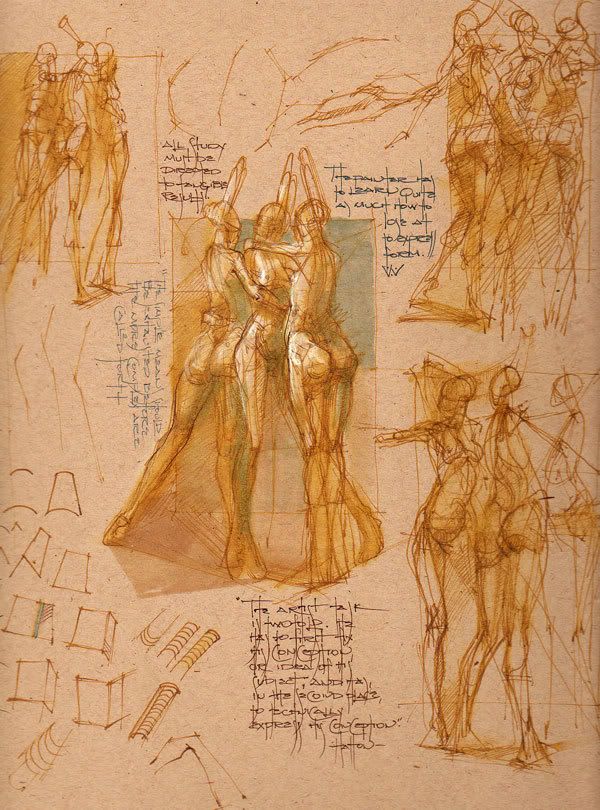 ALL STUDY
MUST BE
DIRECTED
TO TANGIBLE
RESULT!
THE PAINTER HAS
TO LEARN QUITE
AS MUCH HOW TO
LOOK AT
TO EXPRESS
FORM.
"THE SIMPLE MEANS SHOULD
BE EXHAUSTED BEFORE
THE MORE COMPLEX ARE
CALLED FORTH
"THE ARTIST TASK
IS TWOFOLD. HE
HAS TO FIRST FIX
HIS CONCEPTION
OR IDEA OF HIS
SUBJECT, AND HAS,
IN THE SECOND PLACE,
TO TECHNICALLY
EXPRESS HIS CONCEPTION."